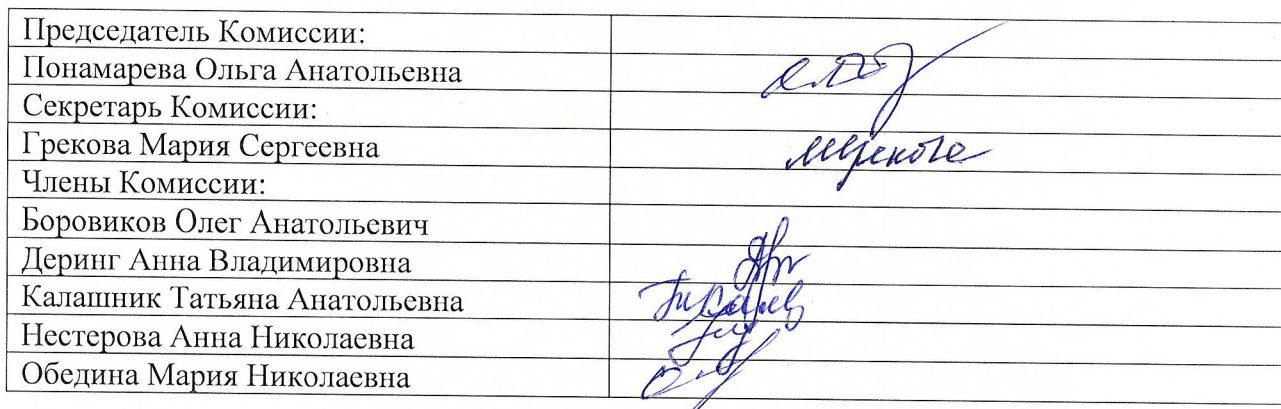 Председатель Комиссии:
Понамарева Ольга Анатольевна
Секретарь Комиссии:
Грекова Мария Сергеевна
Члены Комиссии:
Боровиков Олег Анатольевич
Деринг Анна Владимировна
Калашник Татьяна Анатольевна
Нестерова Анна Николаевна
Обедина Мария Николаевна